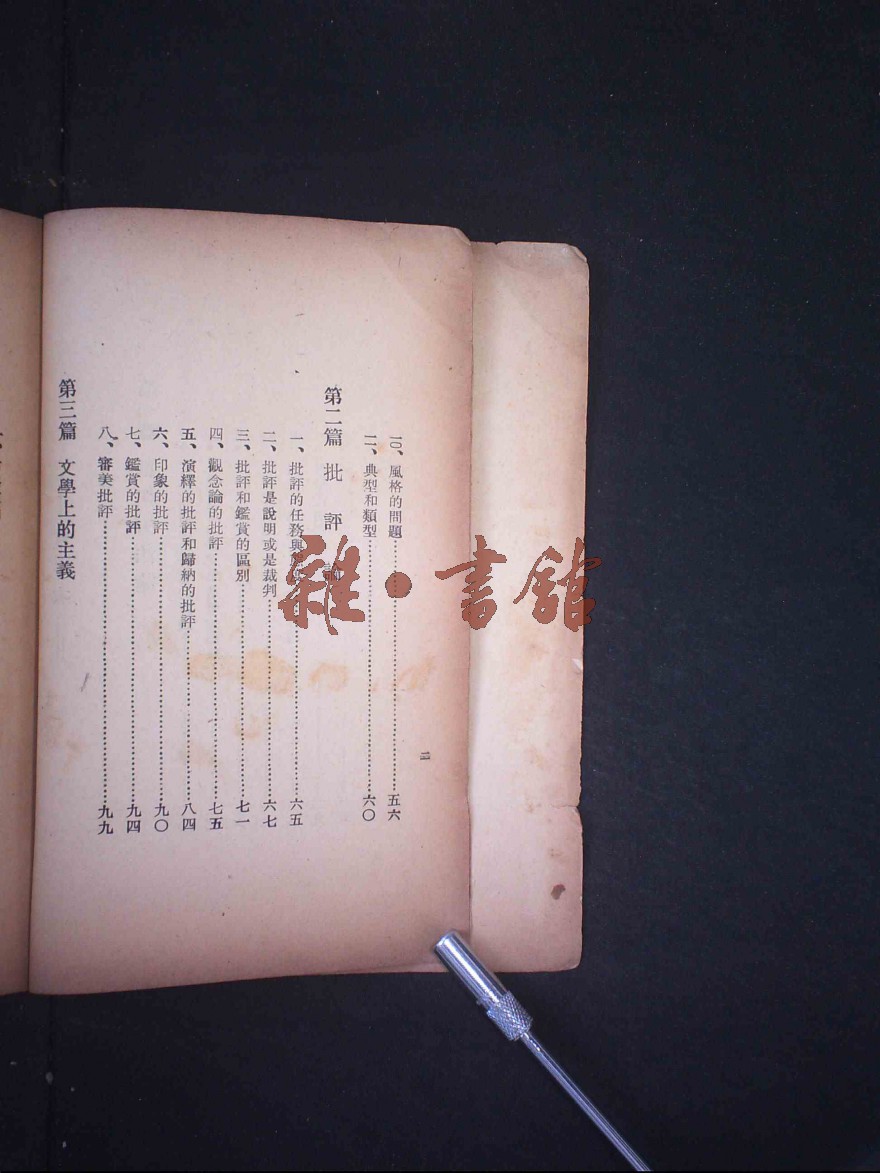 二
一〇、風格的問題……五六
一一、典型和類型……六〇
第二篇 批評論
一、批評的任務與……六五
二、批評是說明或是裁判……六七
三、批評和鑑賞的區別……七一
四、觀念論的批評……七五
五、演繹的批評和歸納的批評……八四
六、印象的批評……九〇
七、鑑賞的批評……九四
八、審美批評……九九
第三篇 文學上的主義
雜·書館